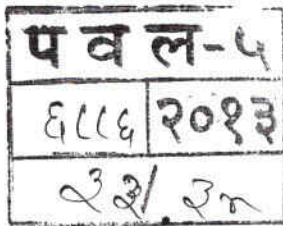 प व ल-५
६८८६ २०१३
३३/३४